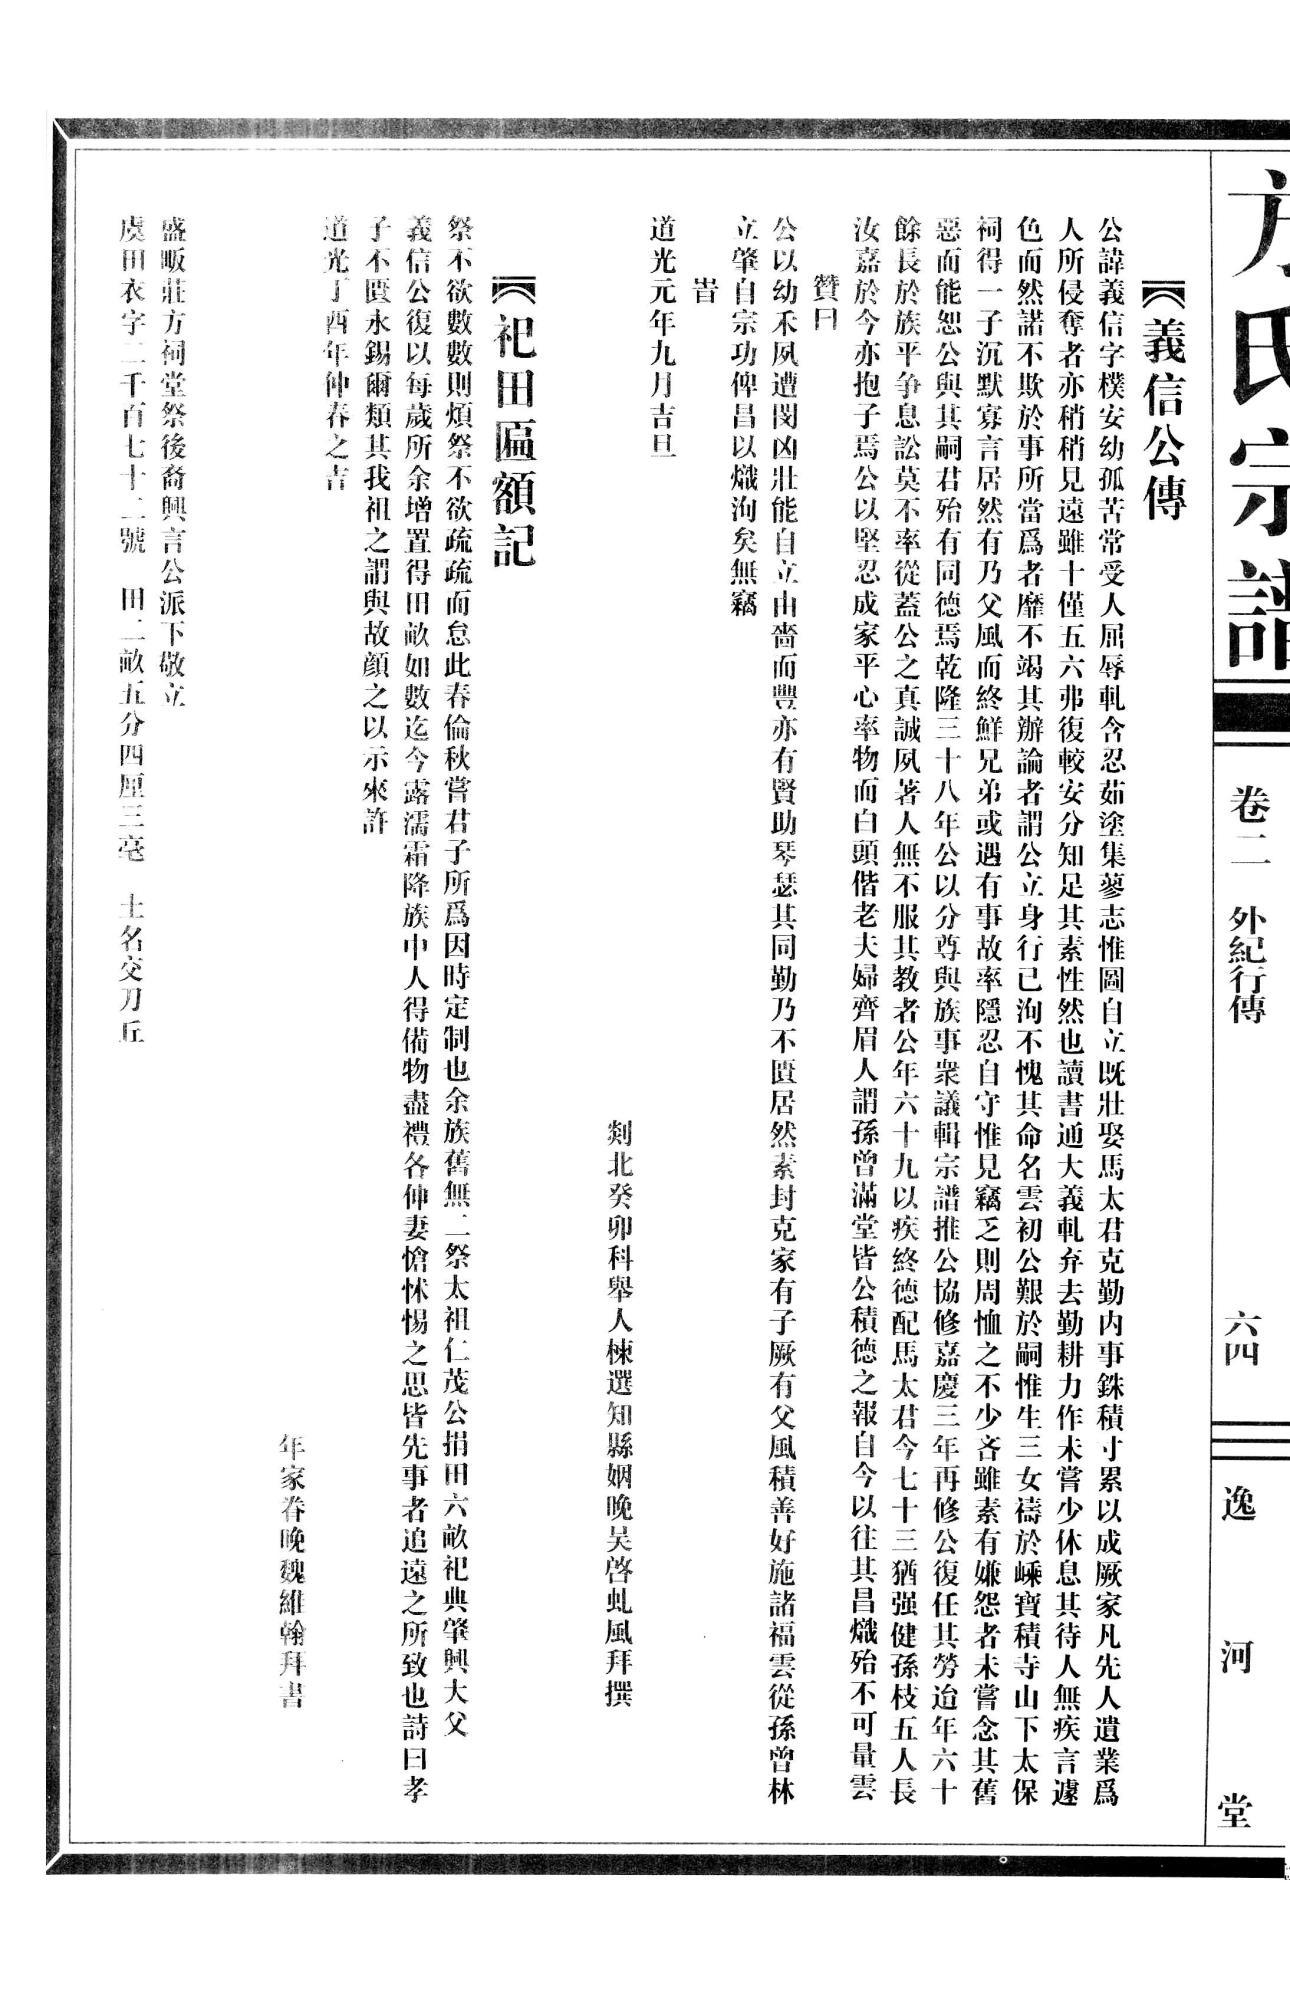 方氏宗譜
卷二　外紀行傳
六四
逸河堂
義信公傳
公諱義信字樸安幼孤苦常受人屈辱軋含忍茹塗集蓼志惟圖自立既壯娶馬太君克勤内事銖積寸累以成厥家凡先人遺業爲
人所侵奪者亦稍稍見遠雖十僅五六弗復較安分知足其素性然也讀書通大義軋弃去勤耕力作未嘗少休息其待人無疾言遽
色而然諾不欺於事所當爲者靡不竭其辦論者謂公立身行已洵不愧其命名雲初公艱於嗣惟生三女禱於嵊寶積寺山下太保
祠得一子沉默寡言居然有乃父風而終鮮兄弟或遇有事故率隱忍自守惟見竊乏則周恤之不少吝雖素有嫌怨者未嘗念其舊
惡而能恕公與其嗣君殆有同德焉乾隆三十八年公以分尊與族事衆議輯宗譜推公協修嘉慶三年再修公復任其勞迨年六十
餘長於族平争息訟莫不率從蓋公之真誠夙著人無不服其教者公年六十九以疾終德配馬太君今七十三猶强健孫枝五人長
汝嘉於今亦抱子焉公以堅忍成家平心率物而白頭偕老夫婦齊眉人謂孫曾滿堂皆公積德之報自今以往其昌熾殆不可量雲
贊曰
公以幼禾夙遭閔凶壯能自立由嗇而豐亦有賢助琴瑟其同勤乃不匱居然素封克家有子厥有父風積善好施諸福雲從孫曾林
立肇自宗功俾昌以熾洵矣無竊
旹
道光元年九月吉旦
剡北癸卯科舉人楝選知縣姻晚吴啓虬風拜撰
祀田匾額記
祭不欲數數則煩祭不欲疏疏而怠此春倫秋嘗君子所爲因時定制也余族舊無二祭太祖仁茂公捐田六畝祀典肇興大父
義信公復以每歲所余增置得田畝如數迄今露濡霜降族中人得備物盡禮各伸妻愴怵惕之思皆先事者追遠之所致也詩曰孝
子不匱永錫爾類其我祖之謂與故顔之以示來許
道光丁酉年仲春之吉
年家眷晚魏維翰拜書
盛畈莊方祠堂祭後裔興言公派下敬立
虞田衣字二千百七十二號　田二畝五分四厘三亳　土名交刀丘